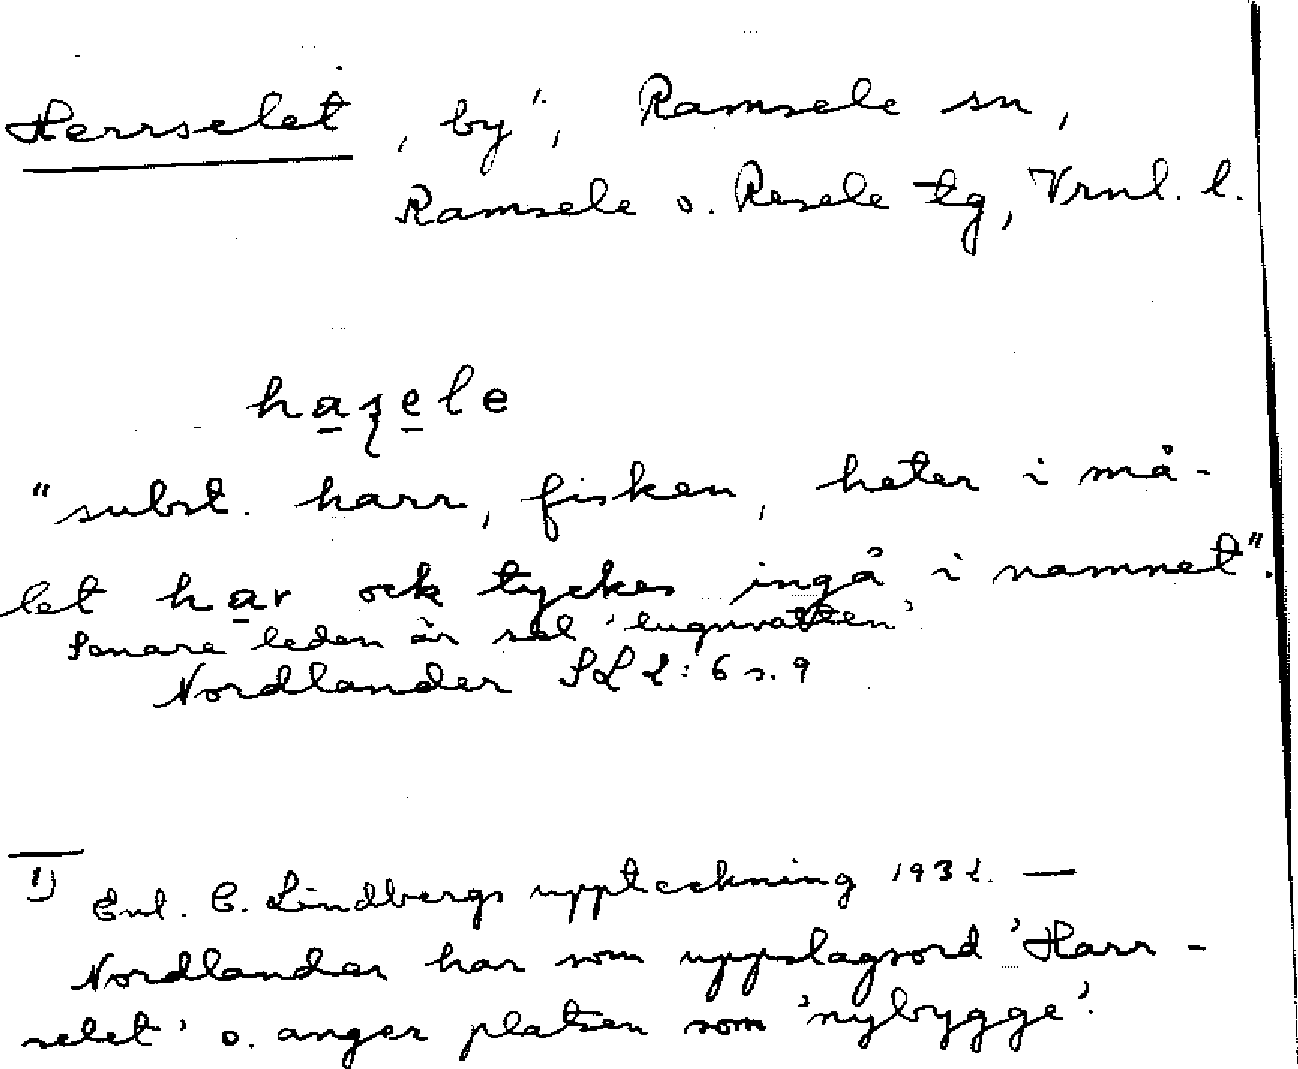 Herrselet, by¹⁾, Ramsele sn,
Ramsele o. Resele tg, Vrnl. l.
haʂele
"subst. harr, fisken, heter i må-
let har ock tyckes ingå i namnet".
Senare leden är sel 'lugnvatten'
Nordlander SL 2:6 s. 9
1) Enl. C. Lindbergs uppteckning 1932. —
Nordlander har som uppslagsord 'Harr-
selet' o. anger platsen som 'nybygge'.